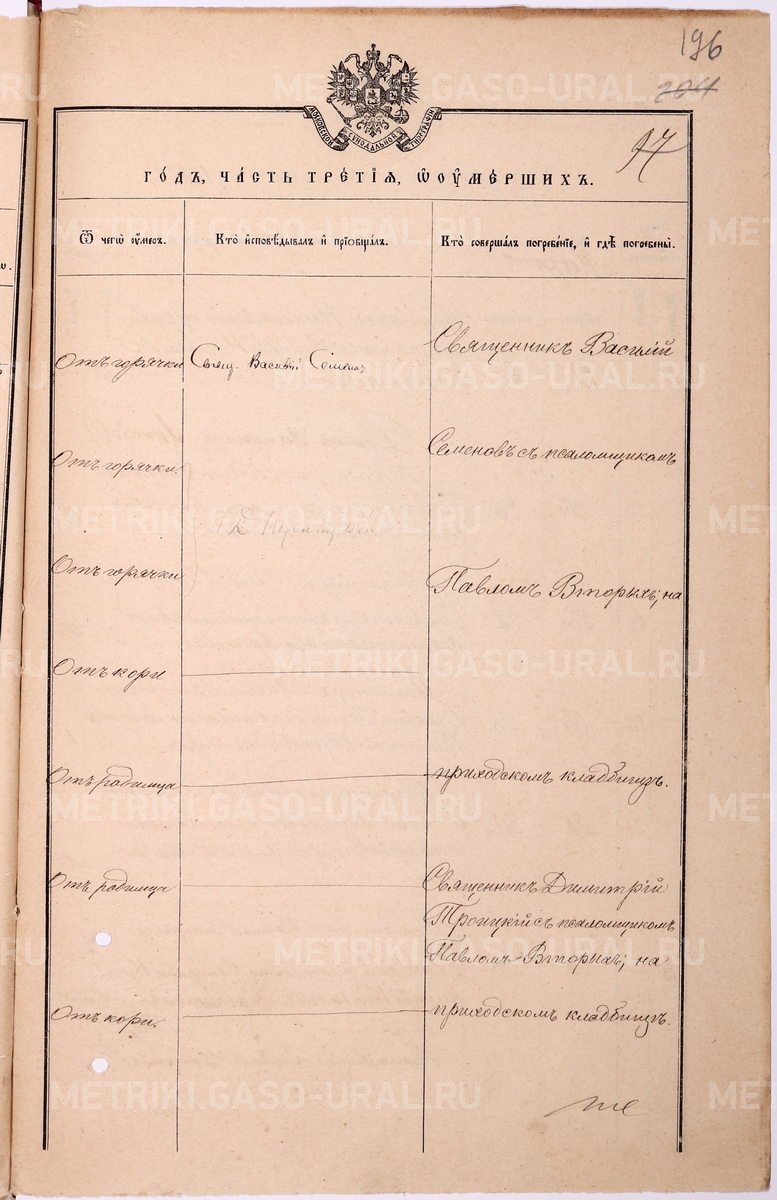 196
204
97
МОСКОВСКОЙ СѴНОДАЛЬНОЙ ТИПОГРАФІИ
ГО́ДЪ, ЧА́СТЬ ТРЕ́ТІѦ, Ѡ ОУ҆МЕ́РШИХЪ.
Ѿ чегѡ̀ оу҆́меръ.
Кто̀ и҆сповѣ́дывалъ и҆ прїѡбща́лъ.
Кто̀ соверша́лъ погребе́нїе, и҆ гдѣ̀ погребены̀.
Отъ горячки
Свящ. Василій Семенов
Священникъ Василій
Отъ горячки
Семеновъ съ псаломщикомъ
Отъ горячки
Павломъ Вторыхъ; на
Отъ кори
Отъ родимца
приходскомъ кладбищѣ.
Отъ родимца
Священникъ Димитрій
Троицкій съ псаломщикомъ
Павломъ Вторыхъ; на
Отъ кори.
приходскомъ кладбищѣ.
METRIKI.GASO-URAL.RU